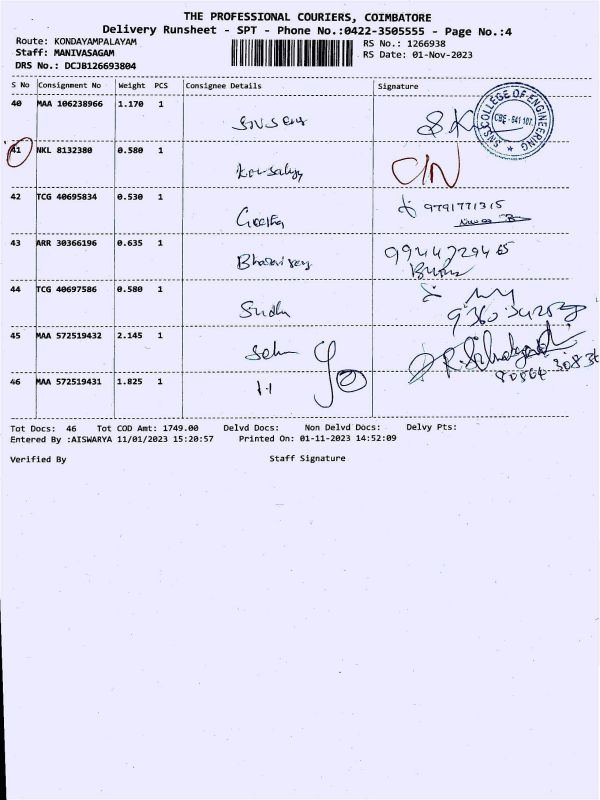 THE PROFESSIONAL COURIERS, COIMBATORE
Delivery Runsheet - SPT - Phone No.:0422-3505555 - Page No.:4
Route: KONDAYAMPALAYAM
RS No.: 1266938
Staff: MANIVASAGAM
RS Date: 01-Nov-2023
DRS No.: DCJB126693804
S No Consignment No Weight PCS Consignee Details Signature
40 MAA 106238966 1.170 1
SNS COLLEGE OF ENGINEERING
CBE - 641 107.
41 NKL 8132380 0.580 1
42 TCG 40695834 0.530 1 Geetha 9791771315
43 ARR 30366196 0.635 1
44 TCG 40697586 0.580 1 Sindhu
45 MAA 572519432 2.145 1
46 MAA 572519431 1.825 1
Tot Docs: 46 Tot COD Amt: 1749.00 Delvd Docs: Non Delvd Docs: Delvy Pts:
Entered By :AISWARYA 11/01/2023 15:20:57 Printed On: 01-11-2023 14:52:09
Verified By Staff Signature